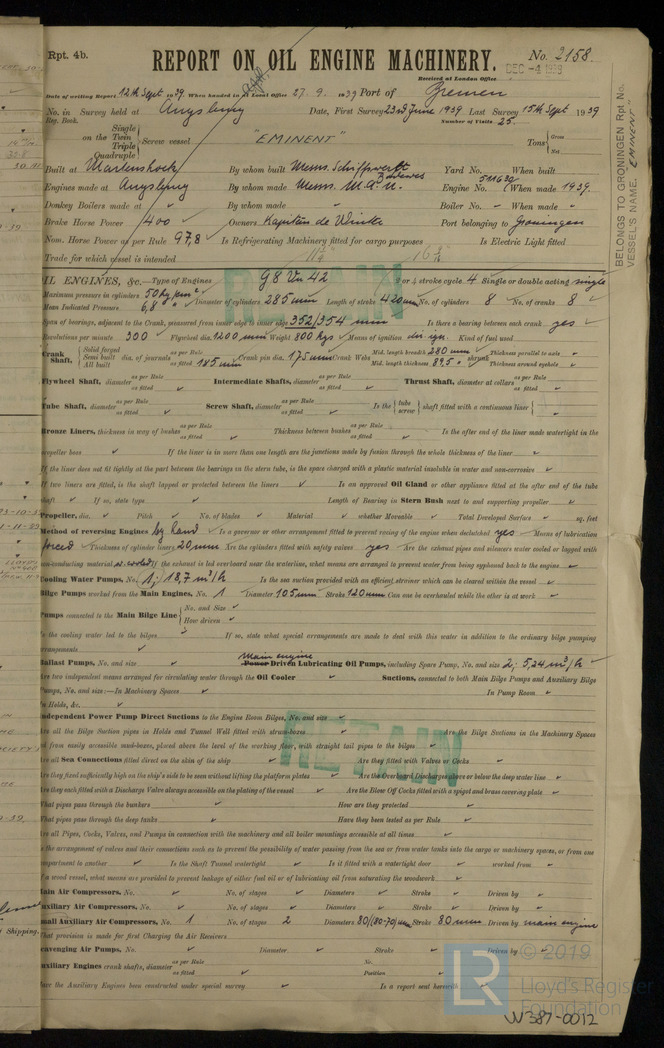 Rpt. 4b.
REPORT ON OIL ENGINE MACHINERY.
No. 2158
Received at London Office
DEC -4
Date of writing Report 12th Sept 1939. When handed in at Local Office 27. 9. 1939 Port of Bremen
No. in Survey held at Augsburg Date, First Survey 23rd June 1939 Last Survey 15th Sept 1939
Reg. Book. Number of Visits 25.
Single
on the Twin
Triple
Quadruple
Screw vessel "EMINENT" Tons Gross
Net
Built at Martenshoek By whom built Messrs. Schiffswerft Yard No. When built
Engines made at Augsburg By whom made Messrs. M.A.N. Engine No. 511632 When made 1939.
Donkey Boilers made at By whom made Boiler No. When made
Brake Horse Power 400 Owners Kapitän de Port belonging to Groningen
Nom. Horse Power as per Rule 97,8 Is Refrigerating Machinery fitted for cargo purposes Is Electric Light fitted
Trade for which vessel is intended
RETAIN
OIL ENGINES, &c.—Type of Engines G8 Vu 42 2 or 4 stroke cycle 4 Single or double acting single
Maximum pressure in cylinders 50 kg/cm² Diameter of cylinders 285 mm Length of stroke 420 mm No. of cylinders 8 No. of cranks 8
Mean Indicated Pressure 6,8
Span of bearings, adjacent to the Crank, measured from inner edge to inner edge 352/354 mm Is there a bearing between each crank yes
Revolutions per minute 300 Flywheel dia. 1200 mm Weight 800 kgs Means of ignition Kind of fuel used
Crank Shaft, Solid forged Semi built All built dia. of journals as per Rule as fitted 185 mm Crank pin dia. 175 mm Crank Webs Mid. length breadth 280 mm Mid. length thickness 89,5 shrunk Thickness parallel to axis Thickness around eyehole
Flywheel Shaft, diameter as per Rule as fitted Intermediate Shafts, diameter as per Rule as fitted Thrust Shaft, diameter at collars as per Rule as fitted
Tube Shaft, diameter as per Rule as fitted Screw Shaft, diameter as per Rule as fitted Is the tube screw shaft fitted with a continuous liner
Bronze Liners, thickness in way of bushes as per Rule as fitted Thickness between bushes as per Rule as fitted Is the after end of the liner made watertight in the
propeller boss If the liner is in more than one length are the junctions made by fusion through the whole thickness of the liner
If the liner does not fit tightly at the part between the bearings in the stern tube, is the space charged with a plastic material insoluble in water and non-corrosive
If two liners are fitted, is the shaft lapped or protected between the liners Is an approved Oil Gland or other appliance fitted at the after end of the tube
shaft If so, state type Length of Bearing in Stern Bush next to and supporting propeller
Propeller, dia. Pitch No. of blades Material whether Moveable Total Developed Surface sq. feet
Method of reversing Engines by hand Is a governor or other arrangement fitted to prevent racing of the engine when declutched yes Means of lubrication
forced Thickness of cylinder liners 20 mm Are the cylinders fitted with safety valves yes Are the exhaust pipes and silencers water cooled or lagged with
non-conducting material If the exhaust is led overboard near the waterline, what means are arranged to prevent water from being syphoned back to the engine
Cooling Water Pumps, No. 1; 18,7 m³/h Is the sea suction provided with an efficient strainer which can be cleared within the vessel
Bilge Pumps worked from the Main Engines, No. 1 Diameter 105 mm Stroke 120 mm Can one be overhauled while the other is at work
Pumps connected to the Main Bilge Line No. and Size
How driven
Is the cooling water led to the bilges If so, state what special arrangements are made to deal with this water in addition to the ordinary bilge pumping
arrangements
Ballast Pumps, No. and size main engine Power Driven Lubricating Oil Pumps, including Spare Pump, No. and size 2; 5,24 m³/h
Are two independent means arranged for circulating water through the Oil Cooler Suctions, connected to both Main Bilge Pumps and Auxiliary Bilge
Pumps, No. and size:—In Machinery Spaces In Pump Room
In Holds, &c.
Independent Power Pump Direct Suctions to the Engine Room Bilges, No. and size
RETAIN
Are all the Bilge Suction pipes in Holds and Tunnel Well fitted with strum-boxes Are the Bilge Suctions in the Machinery Spaces
led from easily accessible mud-boxes, placed above the level of the working floor, with straight tail pipes to the bilges
Are all Sea Connections fitted direct on the skin of the ship Are they fitted with Valves or Cocks
Are they fixed sufficiently high on the ship's side to be seen without lifting the platform plates Are the Overboard Discharges above or below the deep water line
Are they each fitted with a Discharge Valve always accessible on the plating of the vessel Are the Blow Off Cocks fitted with a spigot and brass covering plate
What pipes pass through the bunkers How are they protected
What pipes pass through the deep tanks Have they been tested as per Rule
Are all Pipes, Cocks, Valves, and Pumps in connection with the machinery and all boiler mountings accessible at all times
Is the arrangement of valves and their connections such as to prevent the possibility of water passing from the sea or from water tanks into the cargo or machinery spaces, or from one
compartment to another Is the Shaft Tunnel watertight Is it fitted with a watertight door worked from
If a wood vessel, what means are provided to prevent leakage of either fuel oil or of lubricating oil from saturating the woodwork
Main Air Compressors, No. No. of stages Diameters Stroke Driven by
Auxiliary Air Compressors, No. No. of stages Diameters Stroke Driven by
Small Auxiliary Air Compressors, No. 1 No. of stages 2 Diameters 80/(80-70) mm Stroke 80 mm Driven by main engine
What provision is made for first Charging the Air Receivers
Scavenging Air Pumps, No. Diameter Stroke Driven by
Auxiliary Engines crank shafts, diameter as per Rule as fitted No. Position
Have the Auxiliary Engines been constructed under special survey Is a report sent herewith
BELONGS TO GRONINGEN Rpt No.
VESSEL'S NAME. EMINENT
© 2019
LR
Lloyd's Register
Foundation
W387-0012